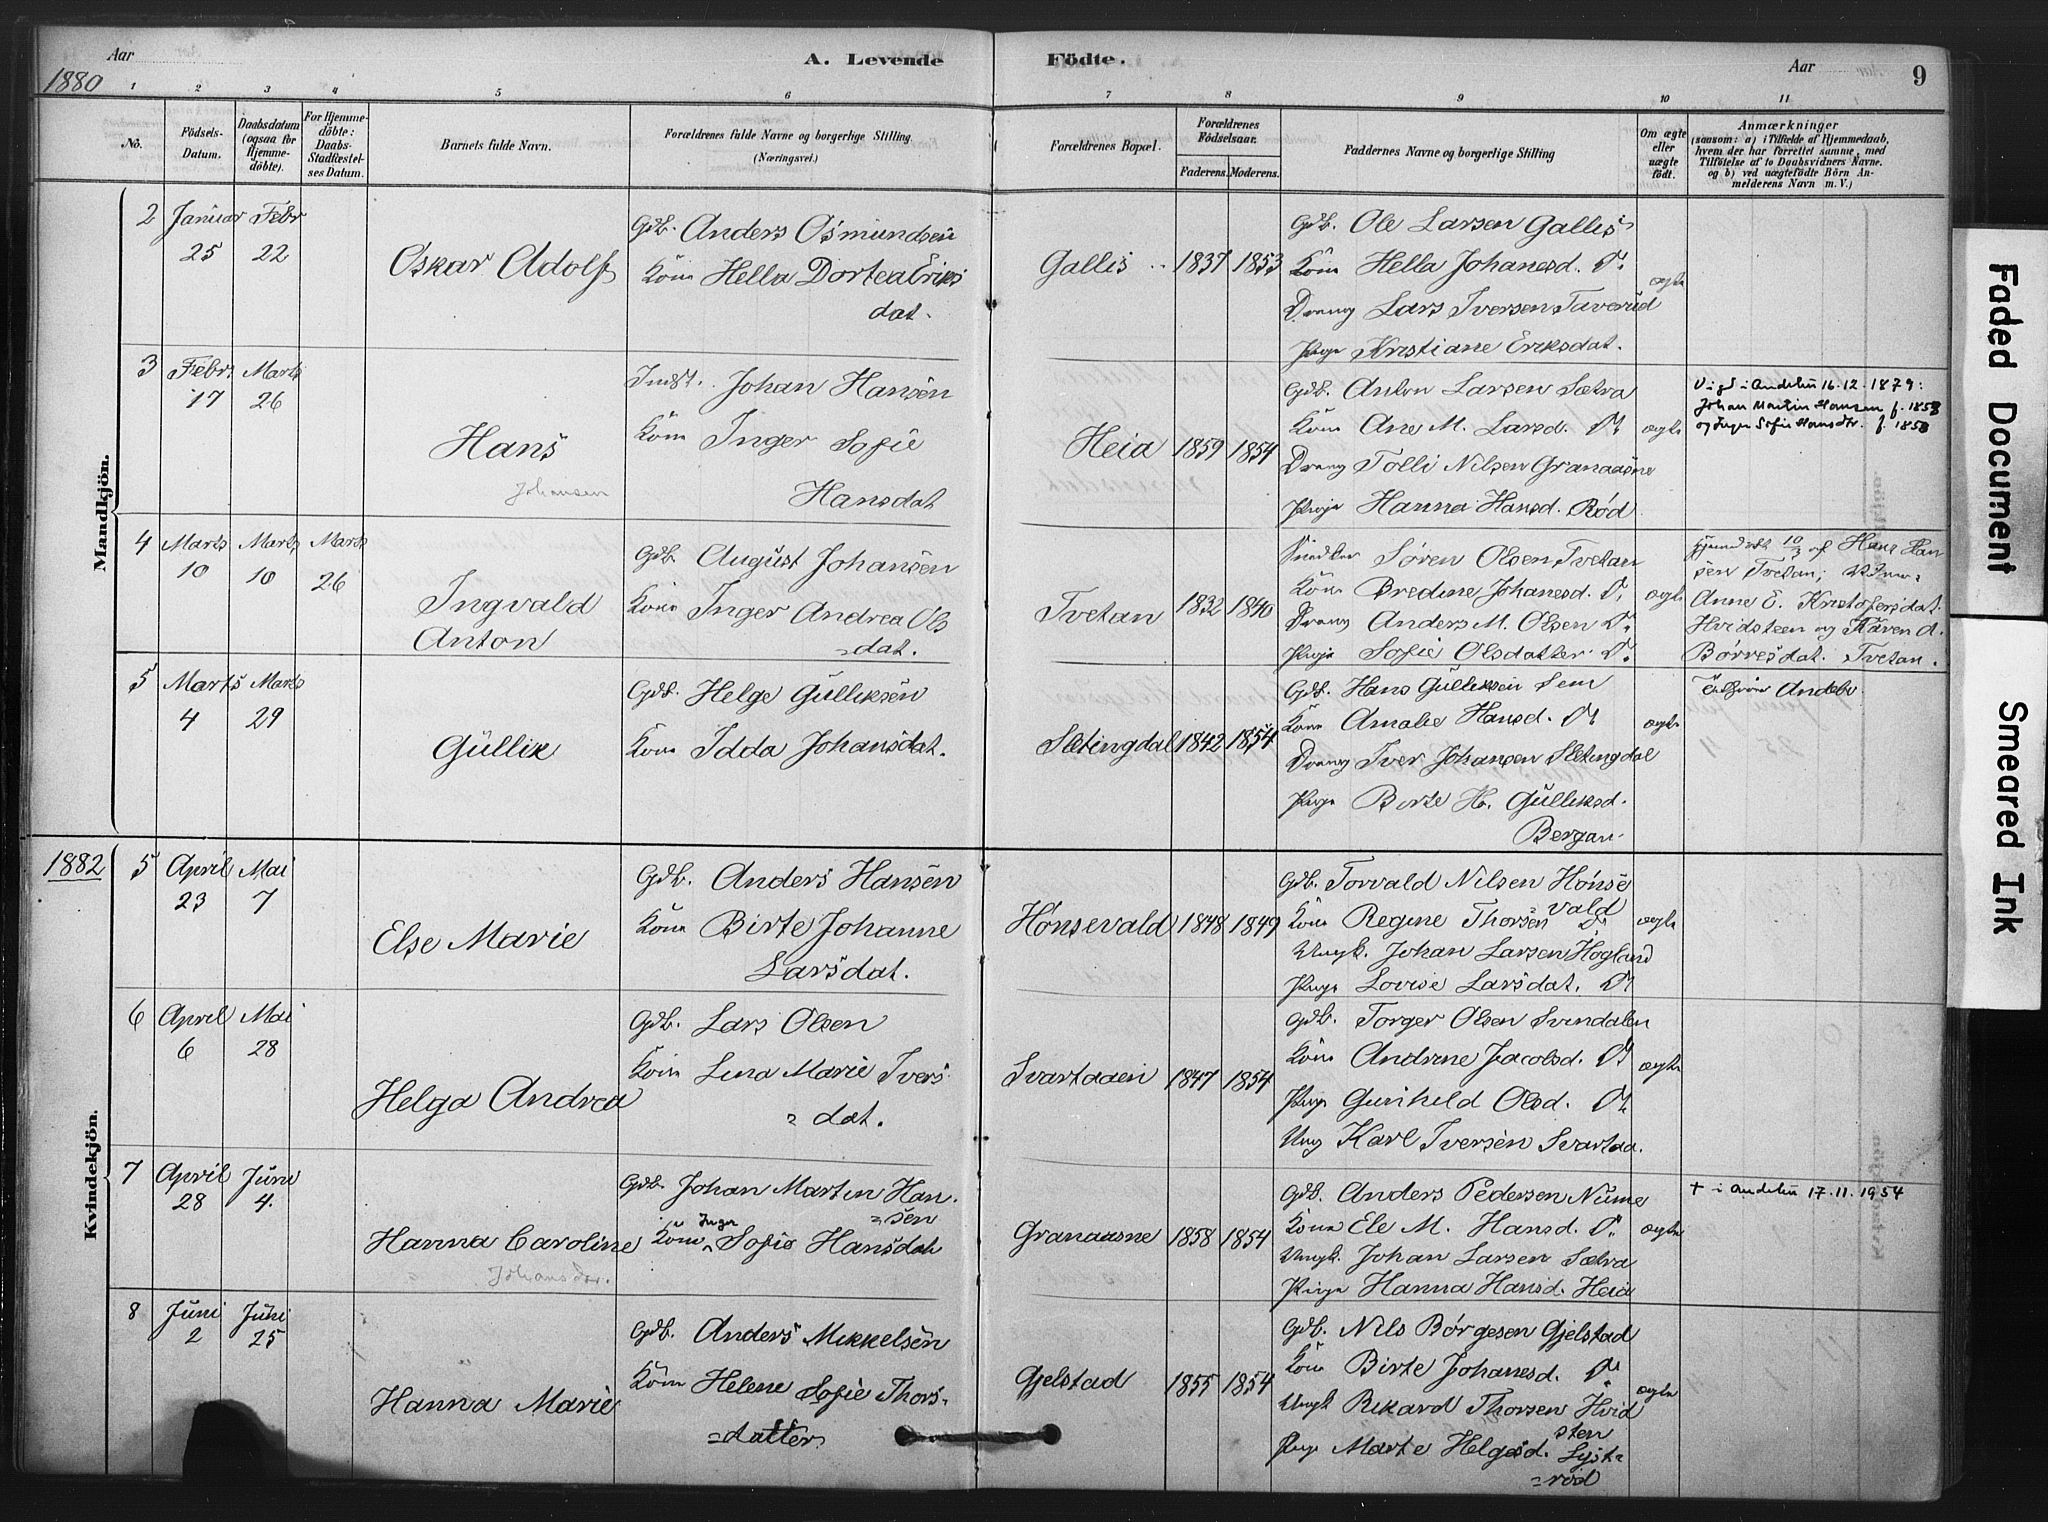 Aar
1880
A. Levende Födte.
Aar
9
1 2 3 4 5 6 7 8 9 10 11
No.
Födsels-Datum.
Daabsdatum (ogsaa for Hjemmedöbte).
For Hjemmedöbte: Daabs-Stadfæstelses Datum.
Barnets fulde Navn.
Forældrenes fulde Navne og borgerlige Stilling. (Næringsvei.)
Forældrenes Bopæl.
Forældrenes Födselsaar.
Faderens. Moderens.
Faddernes Navne og borgerlige Stilling
Om ægte eller uægte födt.
Anmærkninger
(saasom: a) i Tilfælde af Hjemmedaab,
hvem der har forrettet samme, med
Tilföielse af to Daabsvidners Navne.
og b) ved uægtefödte Börn An-
melderens Navn m. V.)
Mandkjön.
2 Januar 25 Febr 22
Oskar Adolf
Gdb. Anders Osmundsen
Kone Hella Dortea Eriks
dat.
Gallis 1837 1853
Gdb. Ole Larsen Gallis
Kone Hella Johanesd. Do
Dreng Lars Iversen Taverud
Pige Kristiane Eriksdat.
ægte
3 Febr 17 Marts 26
Hans
Johansen
Indst. Johan Hansen
Kone Inger Sofie
Hansdat
Heia 1859 1854
Gdb. Anton Larsen Sætra
Kone Ane M. Larsd. Do
Dreng Tolli Nilsen Granaasne
Pige Hanna Hansd. Rød
ægte
Vigd i Andebu 16.12.1879:
Johan Martin Hansen f. 1858
og Inger Sofie Hansdtr. f. 1853
4 Marts 10 Marts 10 Marts 26
Ingvald
Anton
Gdb August Johansen
Kone Inger Andrea Ols
dat.
Tvetan 1832 1840
Snedker Søren Olsen Tvetan
Kone Bredine Johanesd. Do
Dreng Anders M. Olsen Do
Pige Sofie Olsdatter Do
ægte
hjemdøbt 10/3 af Hans Han
sen Tvetan;
Anne E. Kristofersdat.
Hvidsteen og Maren A.
Børresdat. Tvetan.
5 Marts 4 Marts 29
Güllik
Gdb. Helge Gülliksen
Kone Idda Johansdat.
Sletingdal 1842 1854
Gdb. Hans Gülliksen Sem
Kone Amalie Hansd. Do
Dreng Iver Johansen Sletingdal
Pige Birte H. Gülliksd.
Bergan.
ægte
Andebu.
1882
Kvindekjön.
5 April 23 Mai 7
Else Marie
Gdb. Anders Hansen
Kone Birte Johanne
Larsdat.
Hønsevald 1848 1849
Gdb. Torvald Nilsen Hønse
vald
Kone Regine Thorsen Do
Ungk. Johan Larsen Hogland
Pige Lovise Larsdat. Do
ægte
6 April 6 Mai 28
Helga Andrea
Gdb. Lars Olsen
Kone Lena Marie Ivers
dat.
Svartaaen 1847 1854
Gdb. Torger Olsen Svindalen
Kone Andrine Jacobsd. Do
Pige Gunhild Olsd. Do
Ung Karl Iversen Svartaa.
ægte
7 April 28 Juni 4.
Hanna Caroline
Johansdtr.
Gdb. Johan Martin Han
sen
Kone Inger Sofie Hansdat
Granaasne 1858 1854
Gdb. Anders Pedersen Nüme
Kone Ele M. Hansd. Do
Ungk. Johan Larsen Sætra
Pige Hanna Hansd. Heia
ægte
† i Andebu 17.11.1954
8 Juni 2 Juni 25
Hanna Marie
Gdb. Anders Mikkelsen
Kone Helene Sofie Thors
datter
Gjelstad 1855 1854
Gdb. Nils Børgesen Gjelstad
Kone Birte Johanesd. Do
Ungk Rikard Thorsen Hvid
sten
Pige Marte Helgesd. Lyst
rød
ægte
Faded Document
Smeared Ink